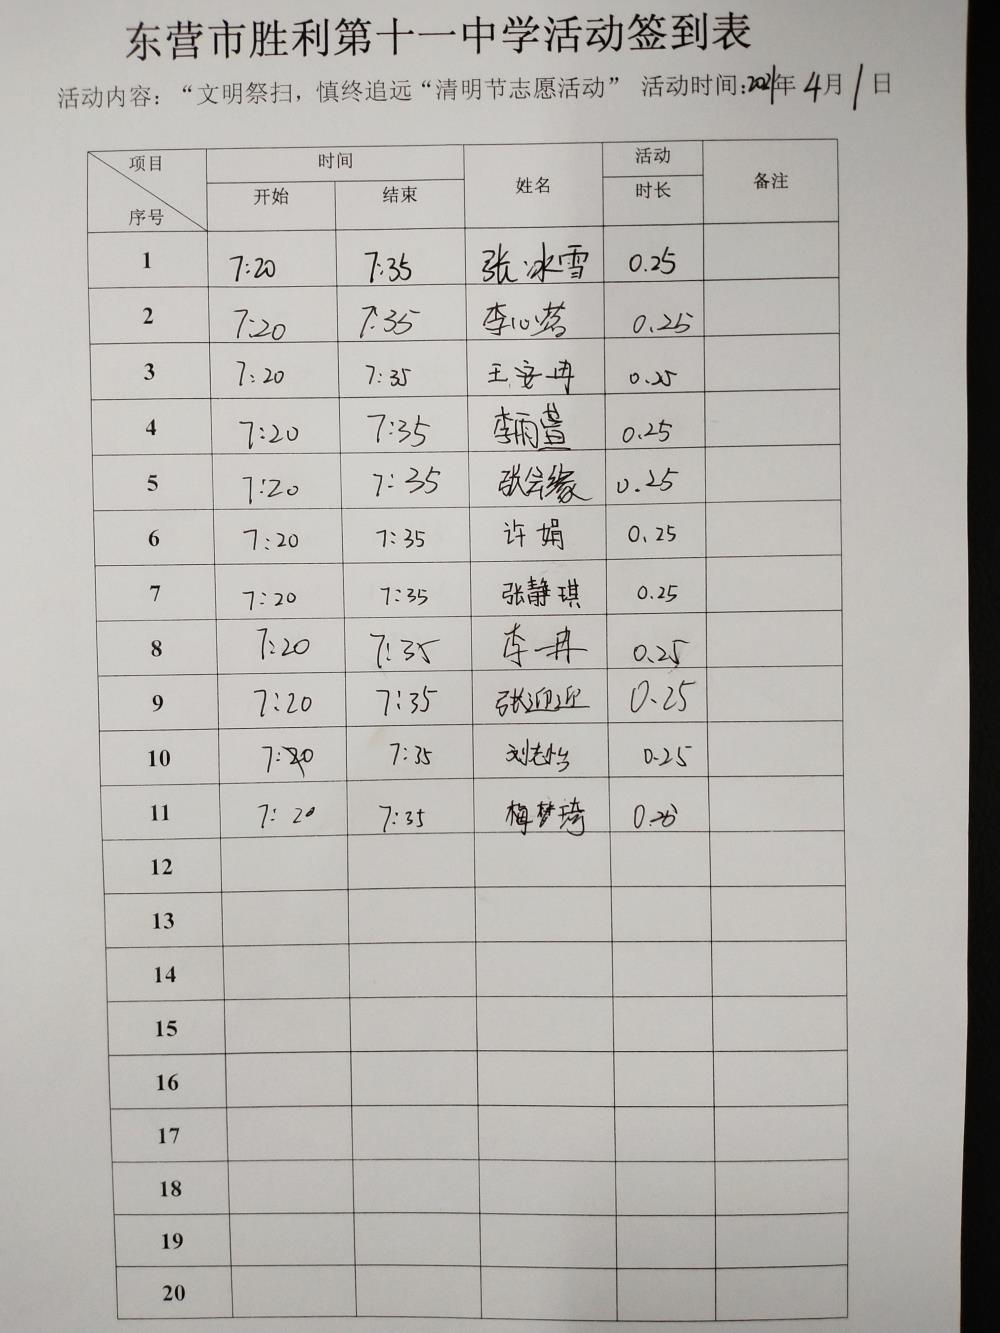 东营市胜利第十一中学活动签到表
活动内容：“文明祭扫，慎终追远“清明节志愿活动” 活动时间:2021年4月1日
项目 时间 姓名 活动 备注
序号 开始 结束 时长
1 7:20 7:35 张冰雪 0.25
2 7:20 7:35 李心蕊 0.25
3 7:20 7:35 王安冉 0.25
4 7:20 7:35 李雨萱 0.25
5 7:20 7:35 张会缘 0.25
6 7:20 7:35 许娟 0.25
7 7:20 7:35 张静琪 0.25
8 7:20 7:35 李一冉 0.25
9 7:20 7:35 张迎迎 0.25
10 7:20 7:35 刘志怡 0.25
11 7:20 7:35 梅梦琦 0.25
12
13
14
15
16
17
18
19
20